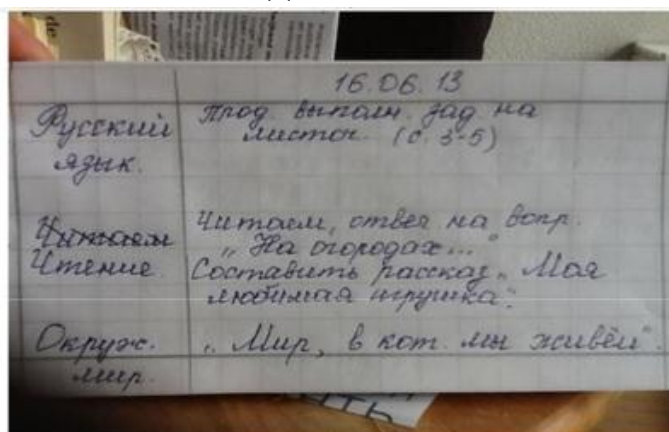 16.06.13
Русский Прод. выполн. зад. на
язык. листоч. (с. 3-5)
Читаем Читаем, ответ на вопр.
„На огородах..."
Чтение. Составить рассказ „Моя
любимая игрушка".
Окруж. „Мир, в кот. мы живём".
мир.